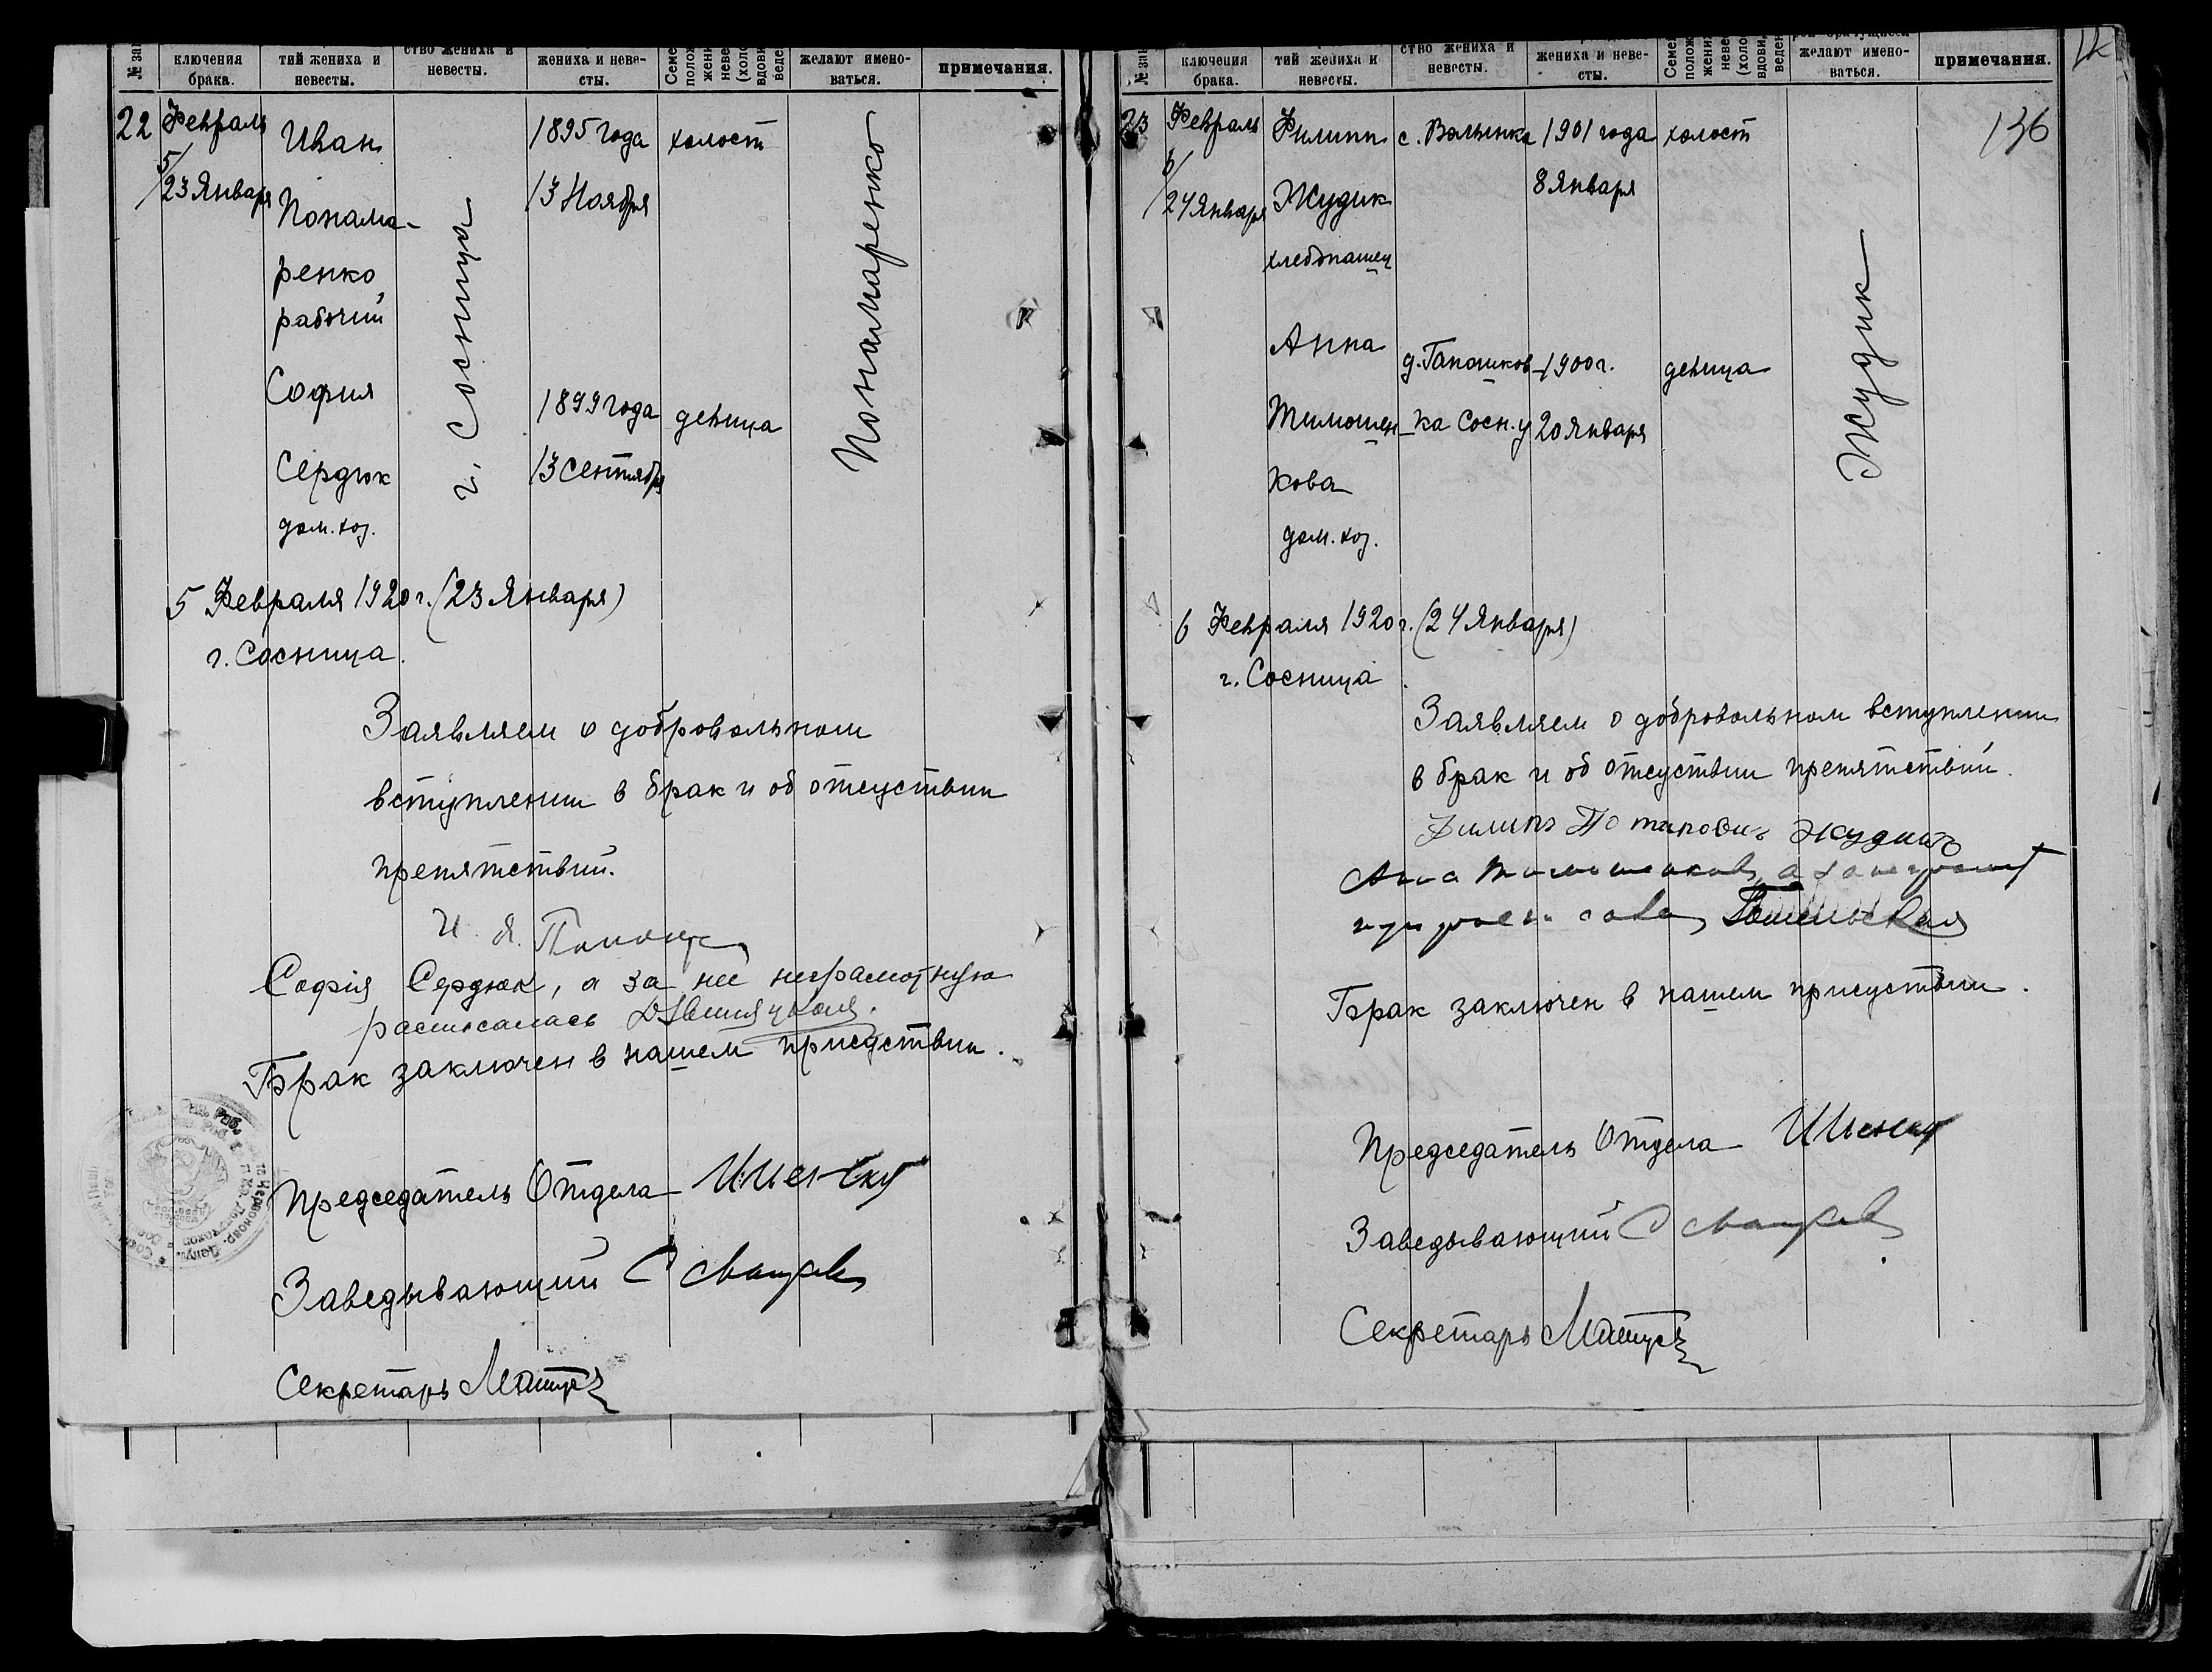 № зап
ключения
брака.
тий жениха и
невесты.
ство жениха и
невесты.
жениха и неве-
сты.
Семе
полож
жени
неве
(холо
вдови
веде
желают имено-
ваться.
примечания.
22
Февраль
5/
23 Января
Иван
Понама-
ренко
рабочий
София
Сердюк
дом. хоз.
г. Сосница
1895 года
13 Ноября
1899 года
13 Сентября
холост
девица
Понамаренко
5 Февраля 1920 г. (23 Января)
г. Сосница.
Заявляем о добровольном
вступлении в брак и об отсуствии
препятствий.
И. Я.
Софія Сердюк, а за нее неграмотную
расписалась
Брак заключен в нашем присуствии.
Председатель Отдела
Заведывающий
Секретарь
№ зап
ключения
брака.
тий жениха и
невесты.
ство жениха и
невесты.
жениха и неве-
сты.
Семе
полож
жених
неве
(холо
вдови,
веден
рой брачущиеся
желают имено-
ваться.
примечания.
136
23
Февраль
6/
24 Января
Филипп
Жудик
хлебопашец
Анна
Тимошен-
кова
дом. хоз.
с. Волынка
д. Гапошков-
ка Сосн. у
1901 года
8 Января
1900 г.
20 Января
холост
девица
Жудик
6 Февраля 1920 г. (24 Января)
г. Сосница
Заявляем о добровольном вступлении
в брак и об отсуствии препятствий.
Филипъ Потаповичъ Жудикъ
Анна Тимошенкова, а за неграмот
Брак заключен в нашем присуствии.
Председатель Отдела
Заведывающий
Секретарь